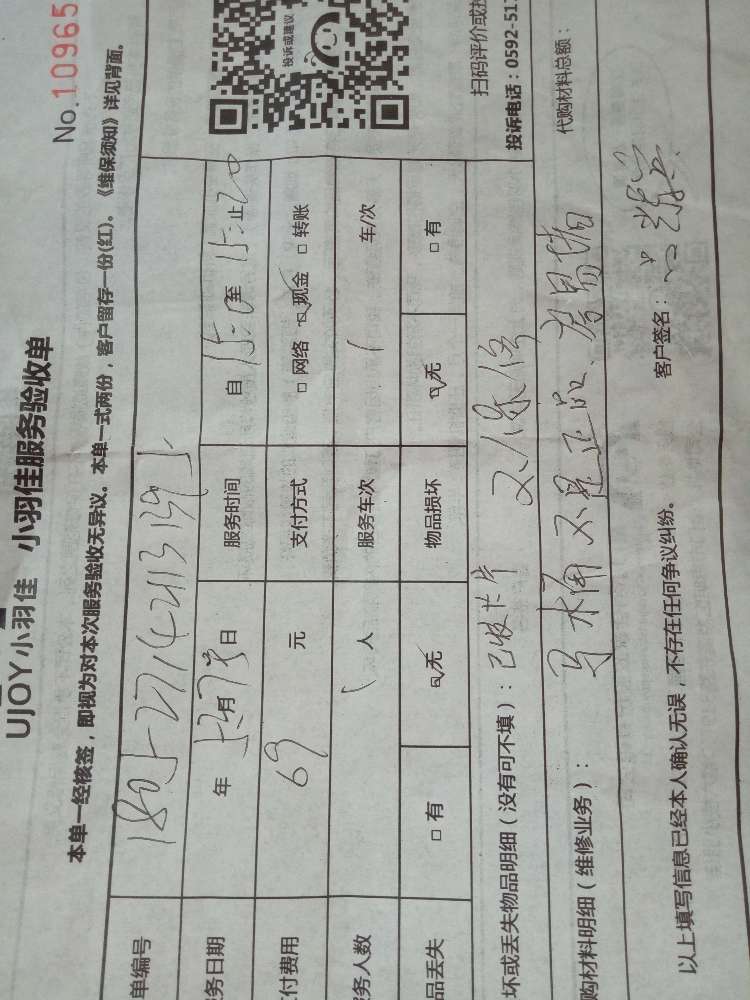 No.10965
UJOY小羽佳 小羽佳服务验收单
本单一经核签，即视为对本次服务验收无异议。本单一式两份，客户留存一份(红)。《维保须知》详见背面。
投诉或建议
单编号
务日期 年 月 日 服务时间 自 15:0 至 15: 止 20
付费用 69 元 支付方式 □ 网络 ☑ 现金 □ 转账
务人数 1 人 服务车次 1 车/次
品丢失 □ 有 ☑ 无 物品损坏 ☑ 无 □ 有
扫码评价或投
投诉电话：0592-51
坏或丢失物品明细（没有可不填）：已收卡片 不保修
购材料明细（维修业务）： 代购材料总额：
马桶不是正品、
以上填写信息已经本人确认无误，不存在任何争议纠纷。 客户签名：